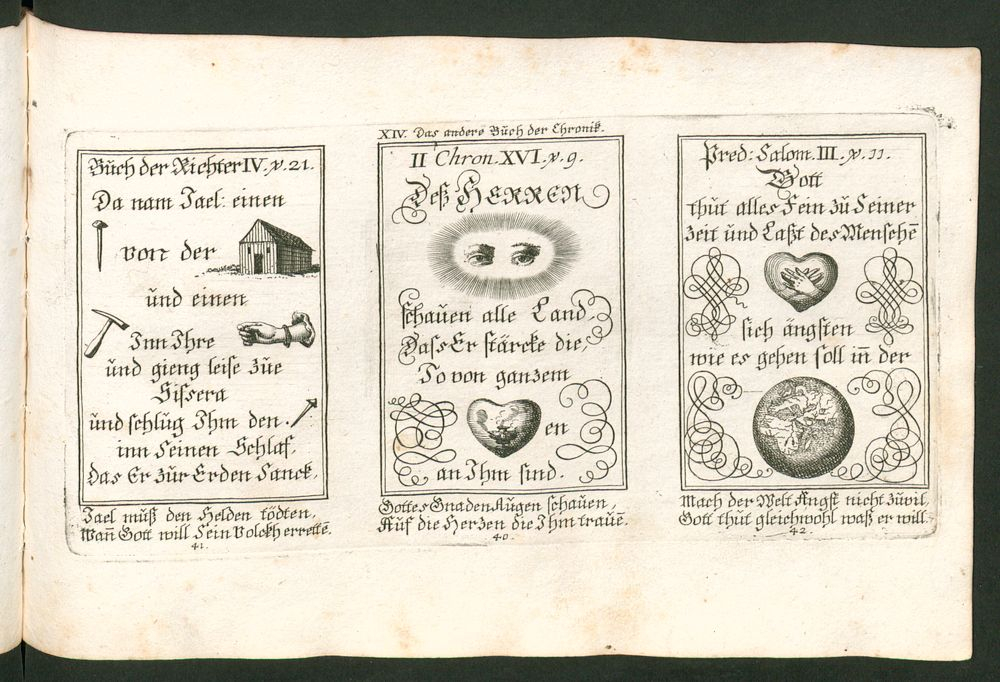 Buch der Richter IV. v. 21.
Da nam Jael: einen
von der
und einen
Inn Ihre
und gieng leise züe
Sissera
und schlug Ihm den
inn Seinen Schlaf,
das Er zür Erden Sanck,
Jael muß den Helden tödten,
Wañ Gott will Sein Volckh errette.
41.
XIV. Das andere Büch der Chronik.
II Chron. XVI. v. 9.
Deß HERREN
schauen alle Land,
Dass Er stärcke die,
So von ganzem
en
an Ihm sind.
Gottes Gnaden Augen schauen,
Auf die Herzen die Ihm traue̅.
40.
Pred: Salom. III. v. 11.
Gott
thüt alles Fein zü Seiner
zeit und Laßt des Mensche̅
sich ängsten
wie es gehen soll in̅ der
Mach der Welt Angst nicht züvil,
Gott thüt gleichwohl waß er will.
42.